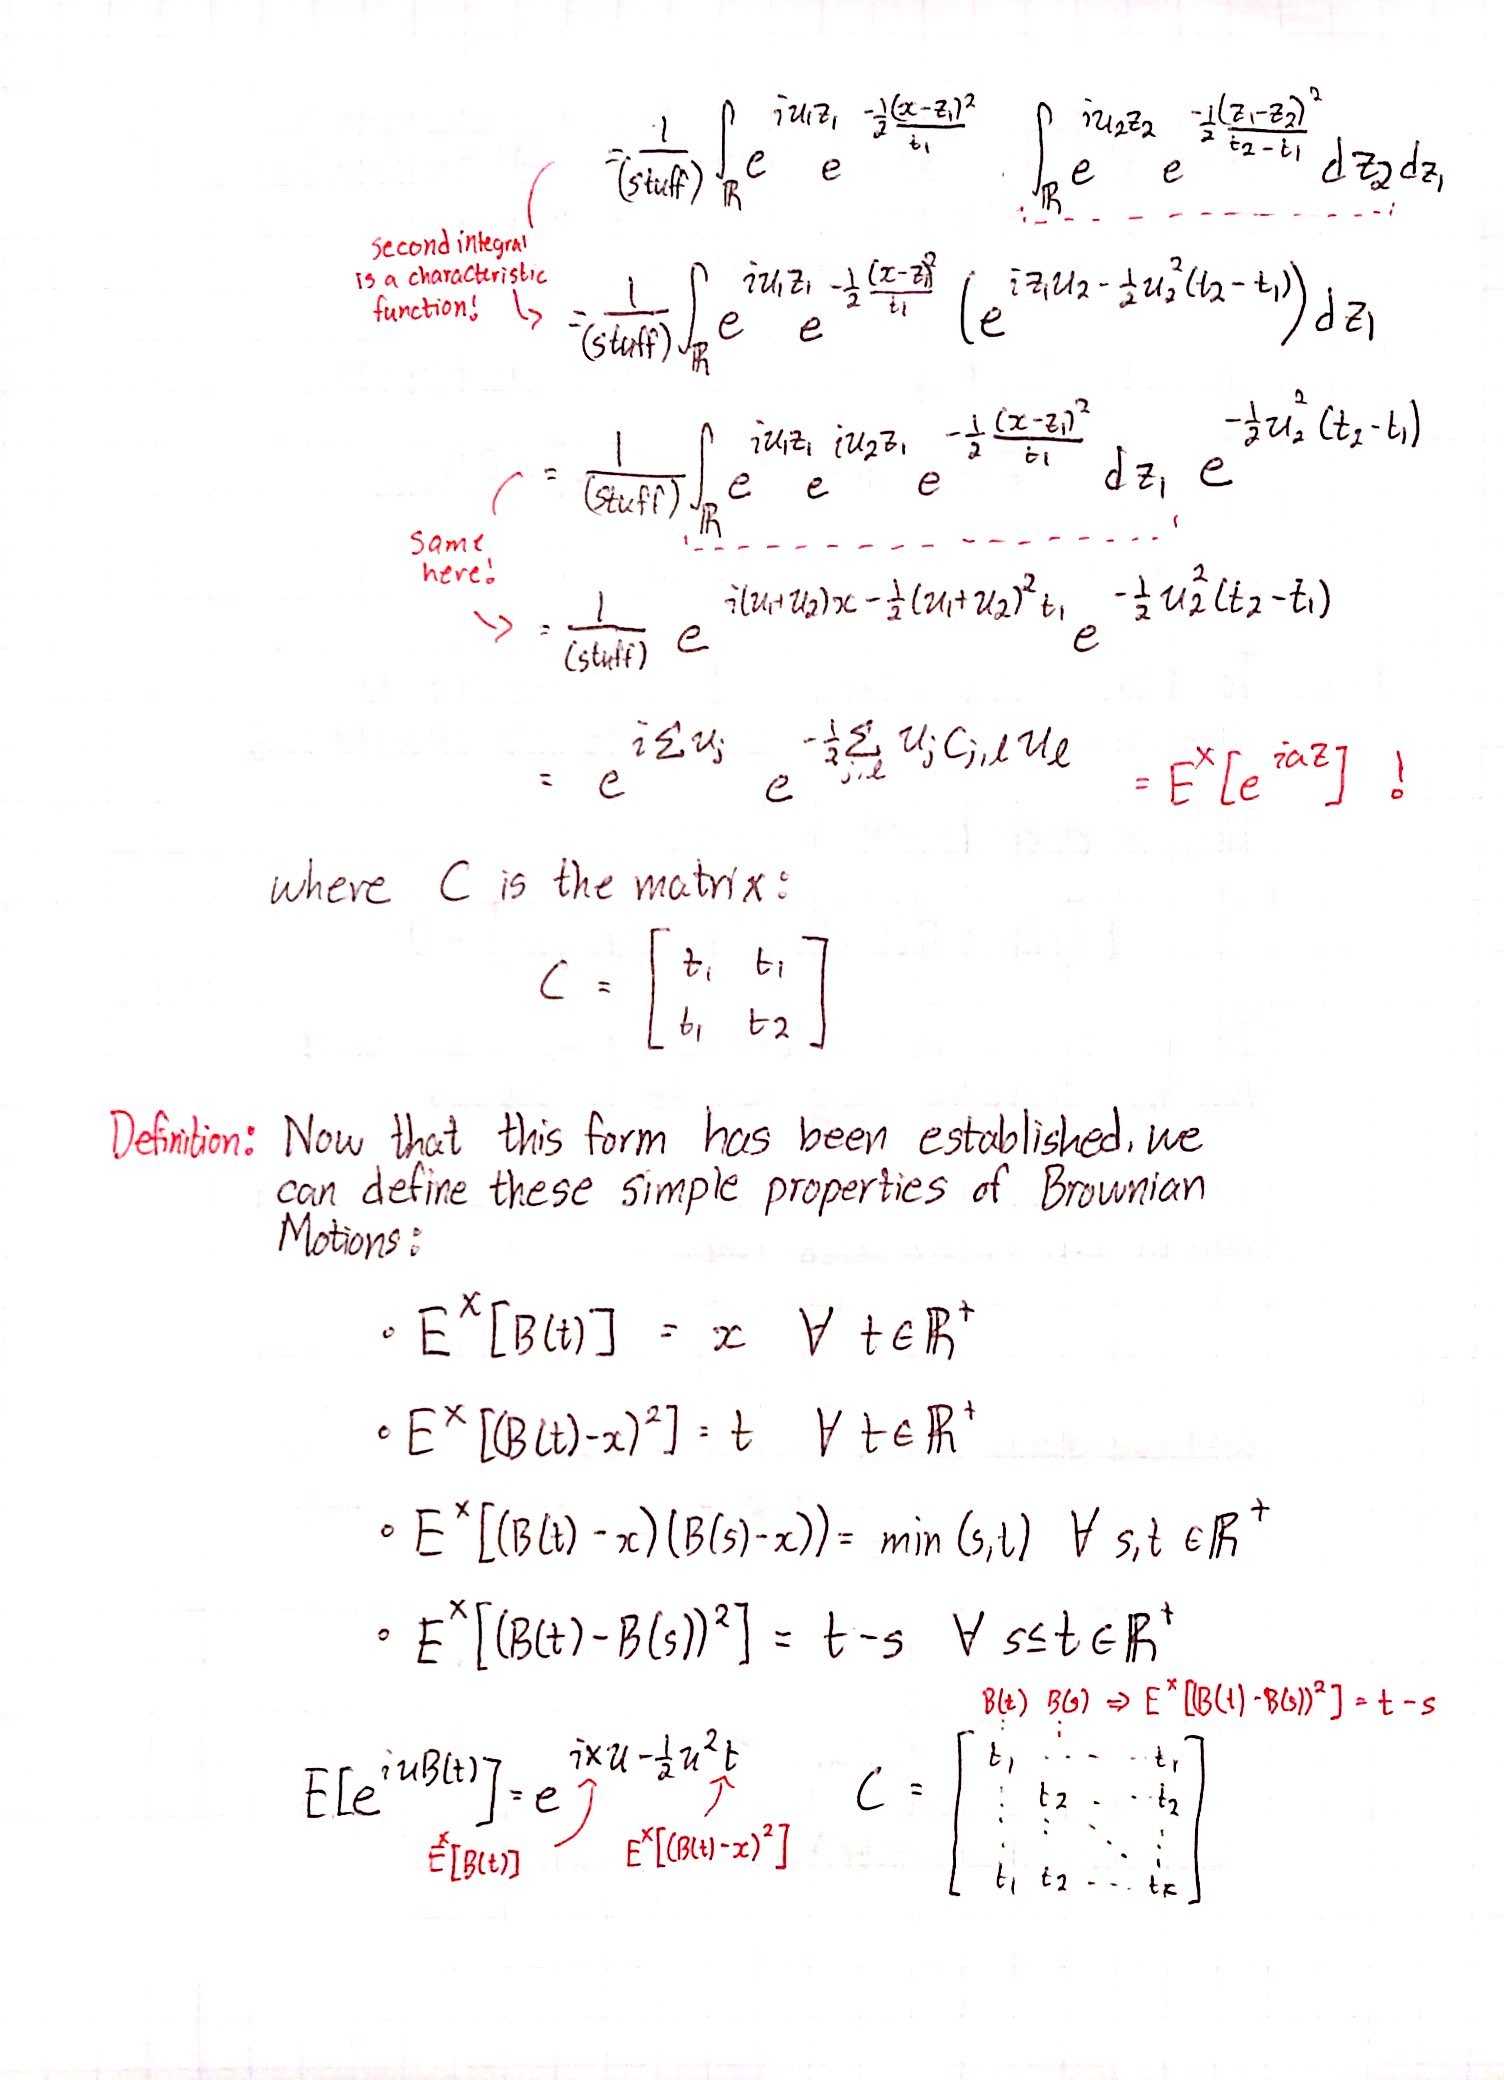 = 1/(stuff) ∫_ℝ e^{iu₁z₁} e^{-½ (x-z₁)²/t₁} · ∫_ℝ e^{iu₂z₂} e^{-½ (z₁-z₂)²/(t₂-t₁)} dz₂dz₁
second integral
is a characteristic
function!
= 1/(stuff) ∫_ℝ e^{iu₁z₁} e^{-½ (x-z₁)²/t₁} (e^{iz₁u₂ - ½u₂²(t₂-t₁)}) dz₁
= 1/(stuff) ∫_ℝ e^{iu₁z₁} e^{iu₂z₁} e^{-½ (x-z₁)²/t₁} dz₁ e^{-½u₂²(t₂-t₁)}
Same
here!
= 1/(stuff) e^{i(u₁+u₂)x - ½(u₁+u₂)²t₁} e^{-½u₂²(t₂-t₁)}
= e^{iΣu_j} e^{-½Σ_{j,l} u_j C_{j,l} u_l} = E^x[e^{iaZ}] !
where C is the matrix:
C = [ t₁ t₁
t₁ t₂ ]
Definition: Now that this form has been established, we
can define these simple properties of Brownian
Motions:
• E^x[B(t)] = x ∀ t∈ℝ⁺
• E^x[(B(t)-x)²] = t ∀ t∈ℝ⁺
• E^x[(B(t)-x)(B(s)-x)) = min (s,t) ∀ s,t ∈ℝ⁺
• E^x[(B(t)-B(s))²] = t-s ∀ s≤t∈ℝ⁺
B(t) B(s) ⇒ E^x[(B(t)-B(s))²] = t-s
E[e^{iuB(t)}] = e^{ixu - ½u²t}
E^x[B(t)] E^x[(B(t)-x)²]
C = [ t₁ ... ..t₁
⋮ t₂ . ..t₂
⋮ ⋮ ⋱ ⋮
t₁ t₂ ... t_k ]